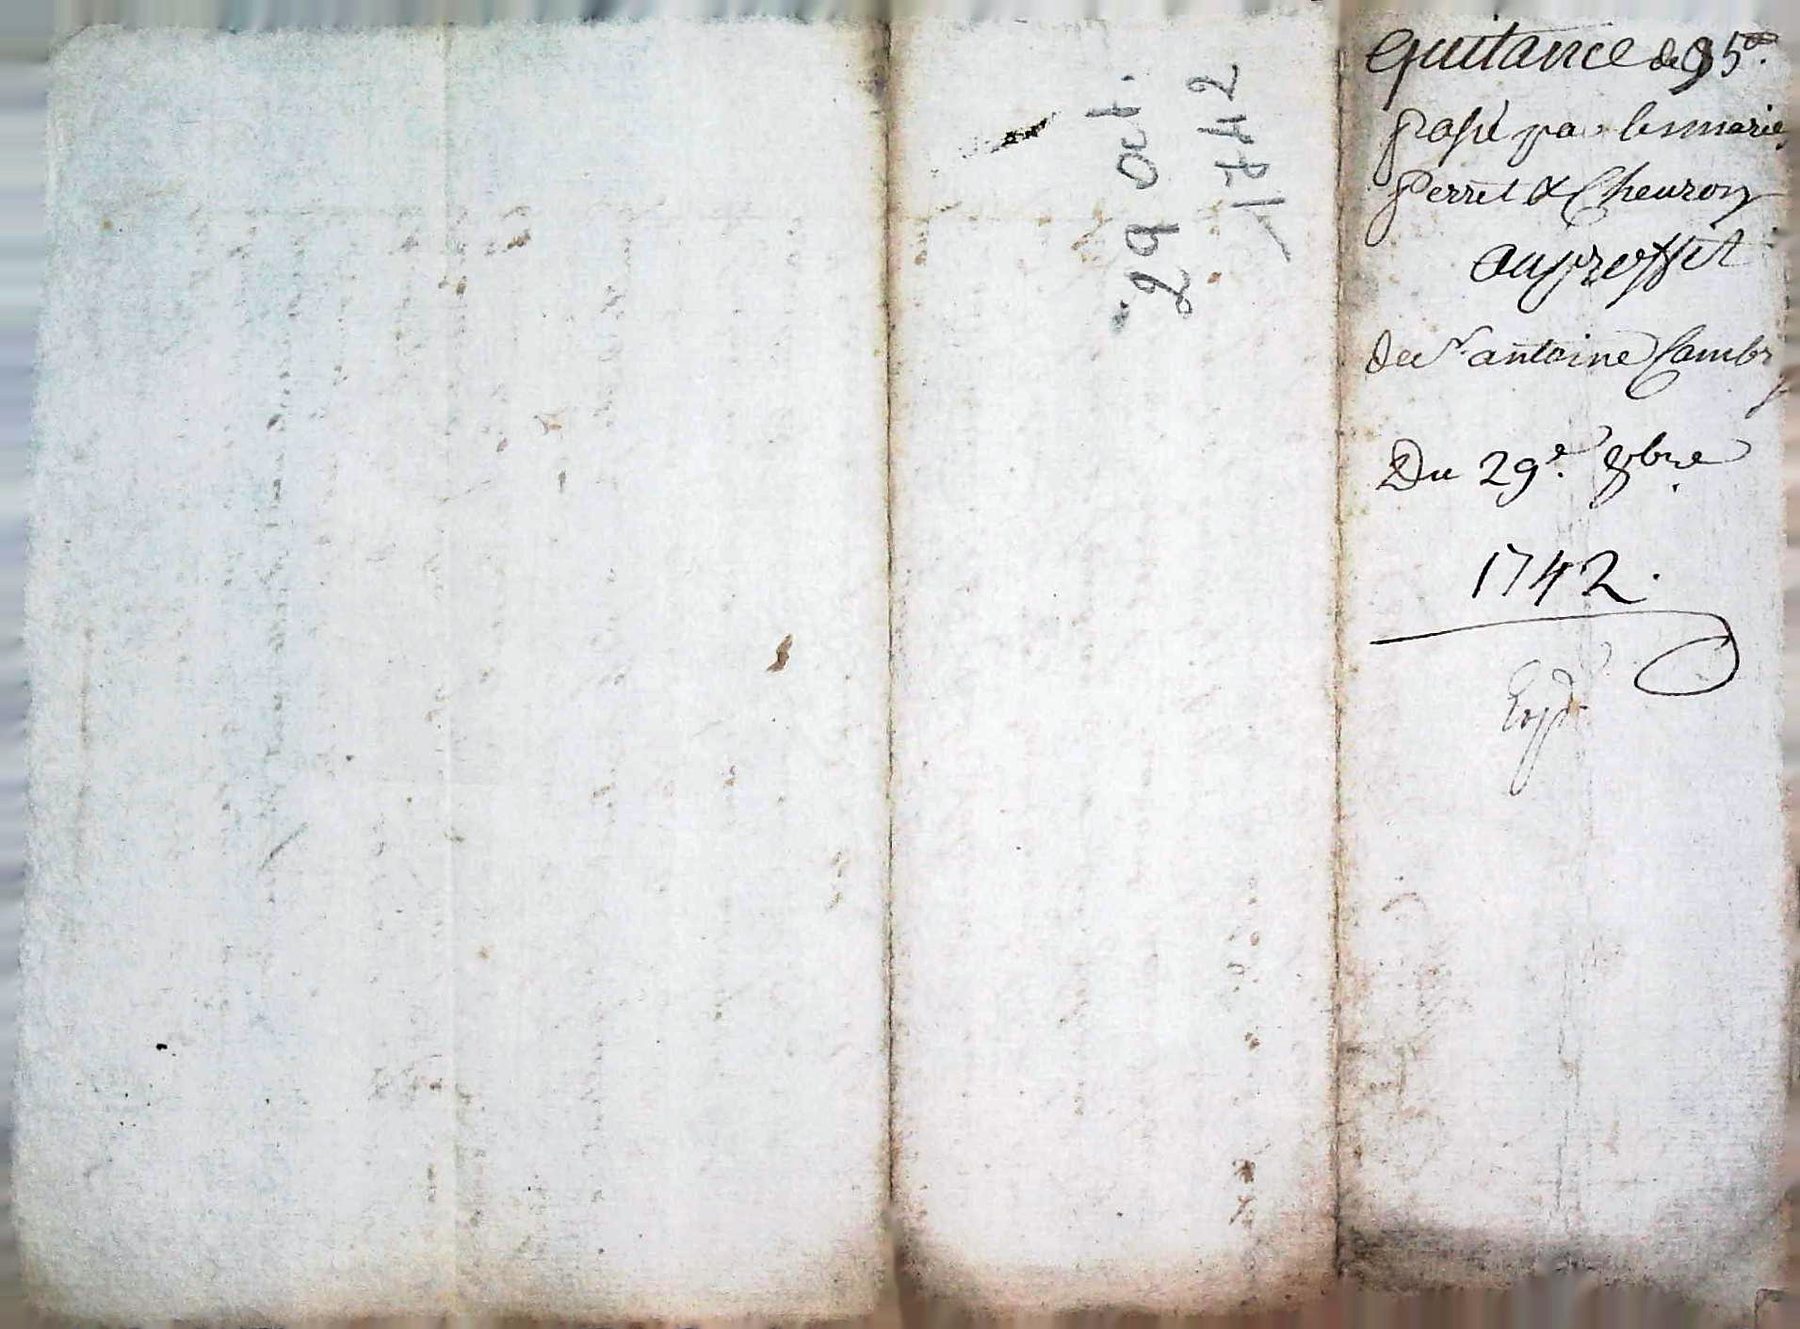 29 Oct.
1742
Quitance de 95#.
passé par les mariés
Perret & Cheuron
au proffit
du Sr antoine Cambry
Du 29e. 8bre
1742.
Expd